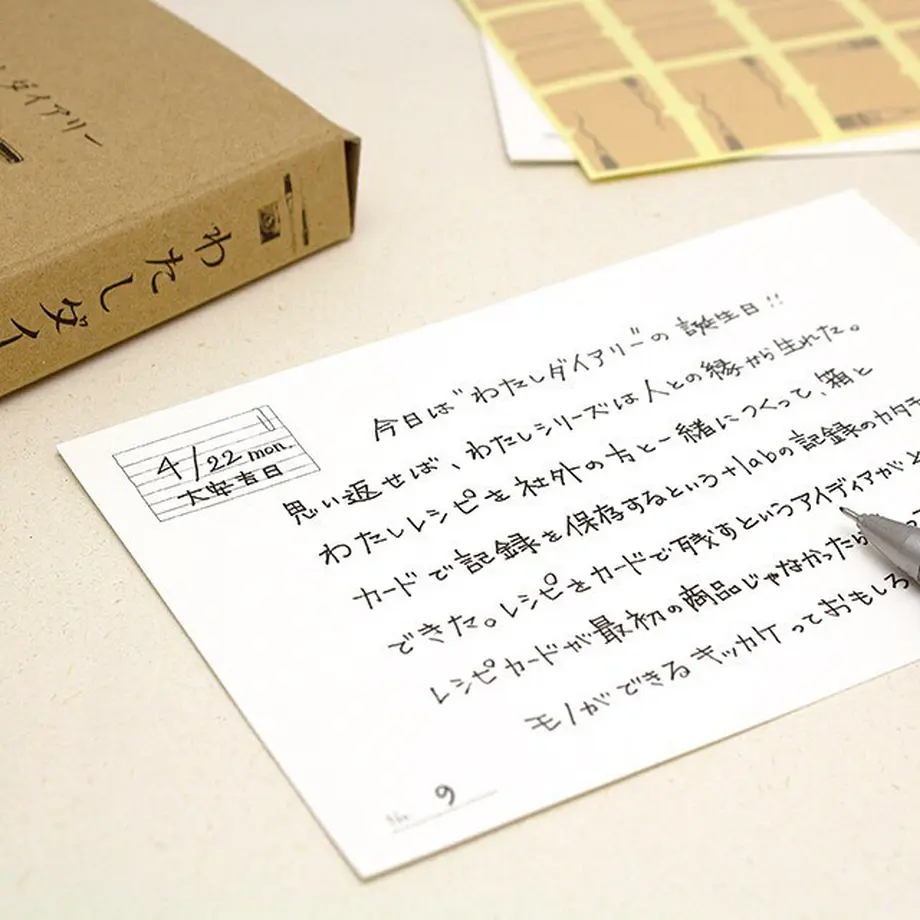 ダイアリー
わたしダイ
4/22 mon.
大安吉日
今日は"わたしダイアリー"の誕生日!!
思い返せば、わたしシリーズは人との縁から生れた。
わたしレシピを社外の方と一緒につくって、箱と
カードで記録を保存するという+labの記録のカタチ
できた。レシピをカードで残すというアイディアがと
レシピカードが最初の商品じゃなかったら
モノができるキッカケっておもしろ
No. 9